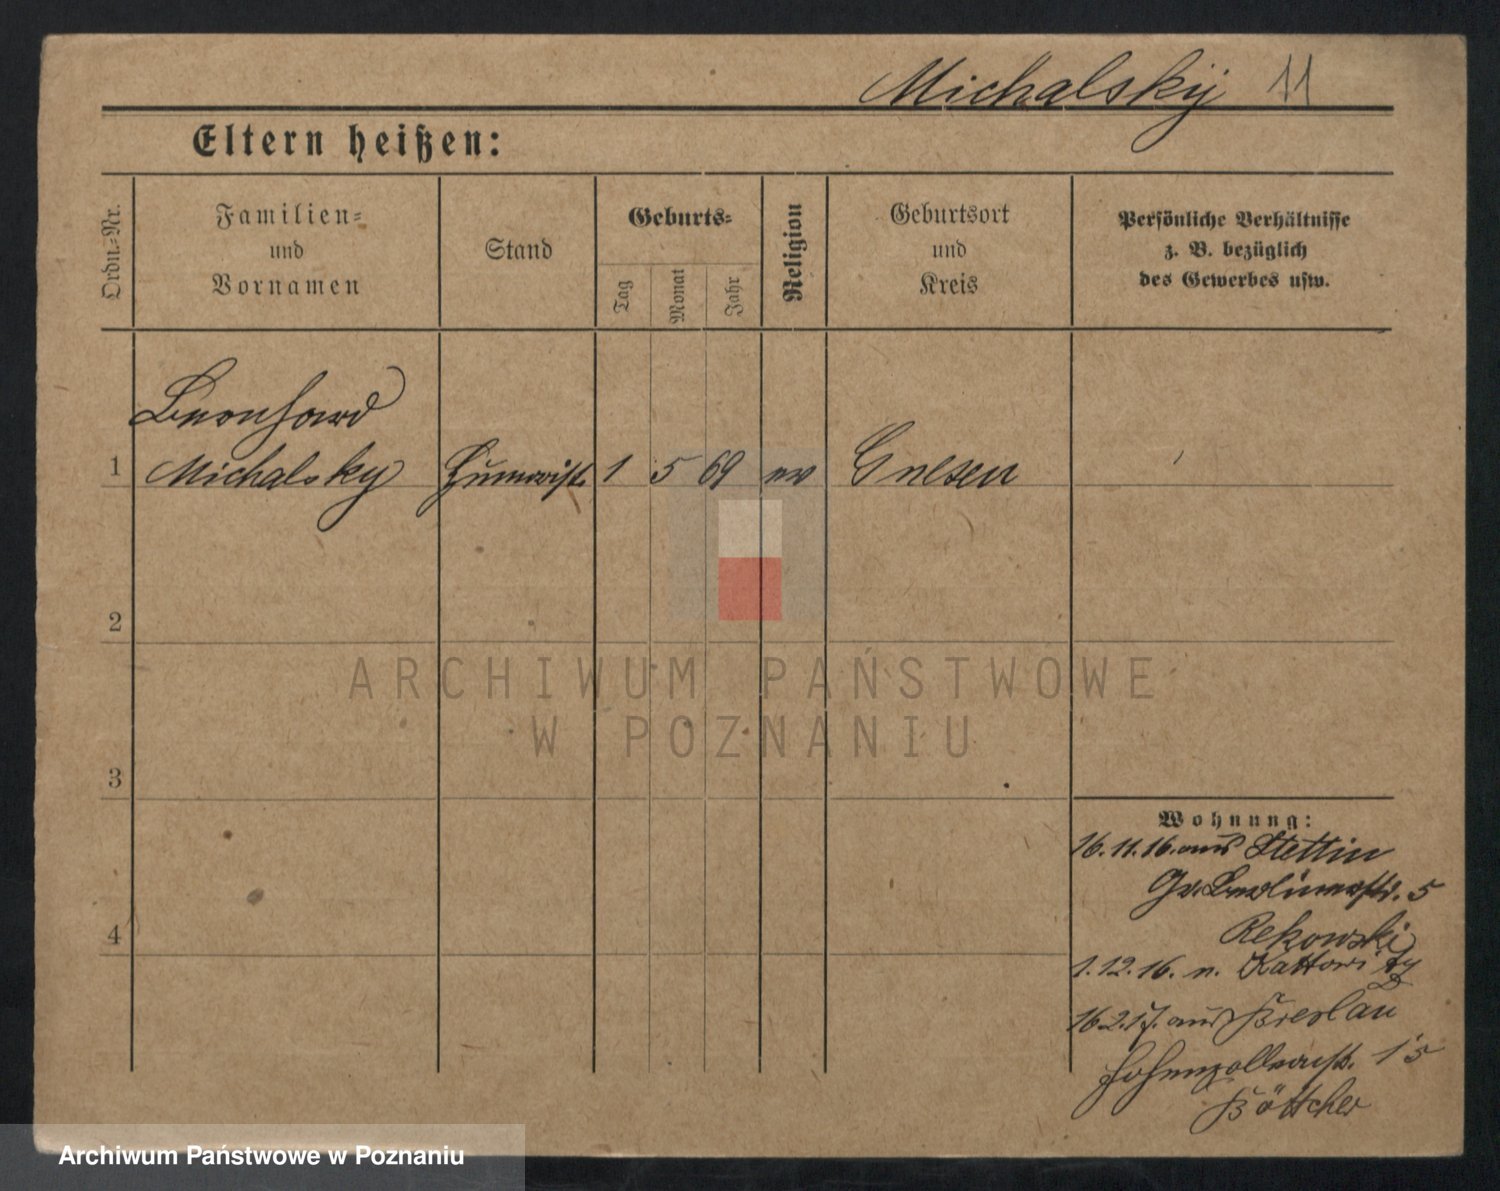 Michalsky 11
Eltern heißen:
Ordn.-Nr.
Familien-
und
Vornamen
Stand
Geburts-
Tag
Monat
Jahr
Religion
Geburtsort
und
Kreis
Persönliche Verhältnisse
z. B. bezüglich
des Gewerbes usw.
Leonhard
1 Michalsky Humorist 1 5 69 ev Gnesen
2
ARCHIWUM PAŃSTWOWE
W POZNANIU
3
Wohnung:
16.11.16. aus Stettin
Gr. Berlinerstr. 5
Rekowski
4
1.12.16. n. Kattowitz
16.2.17. aus Breslau
Hohenzollernstr. 15
Böttcher
Archiwum Państwowe w Poznaniu